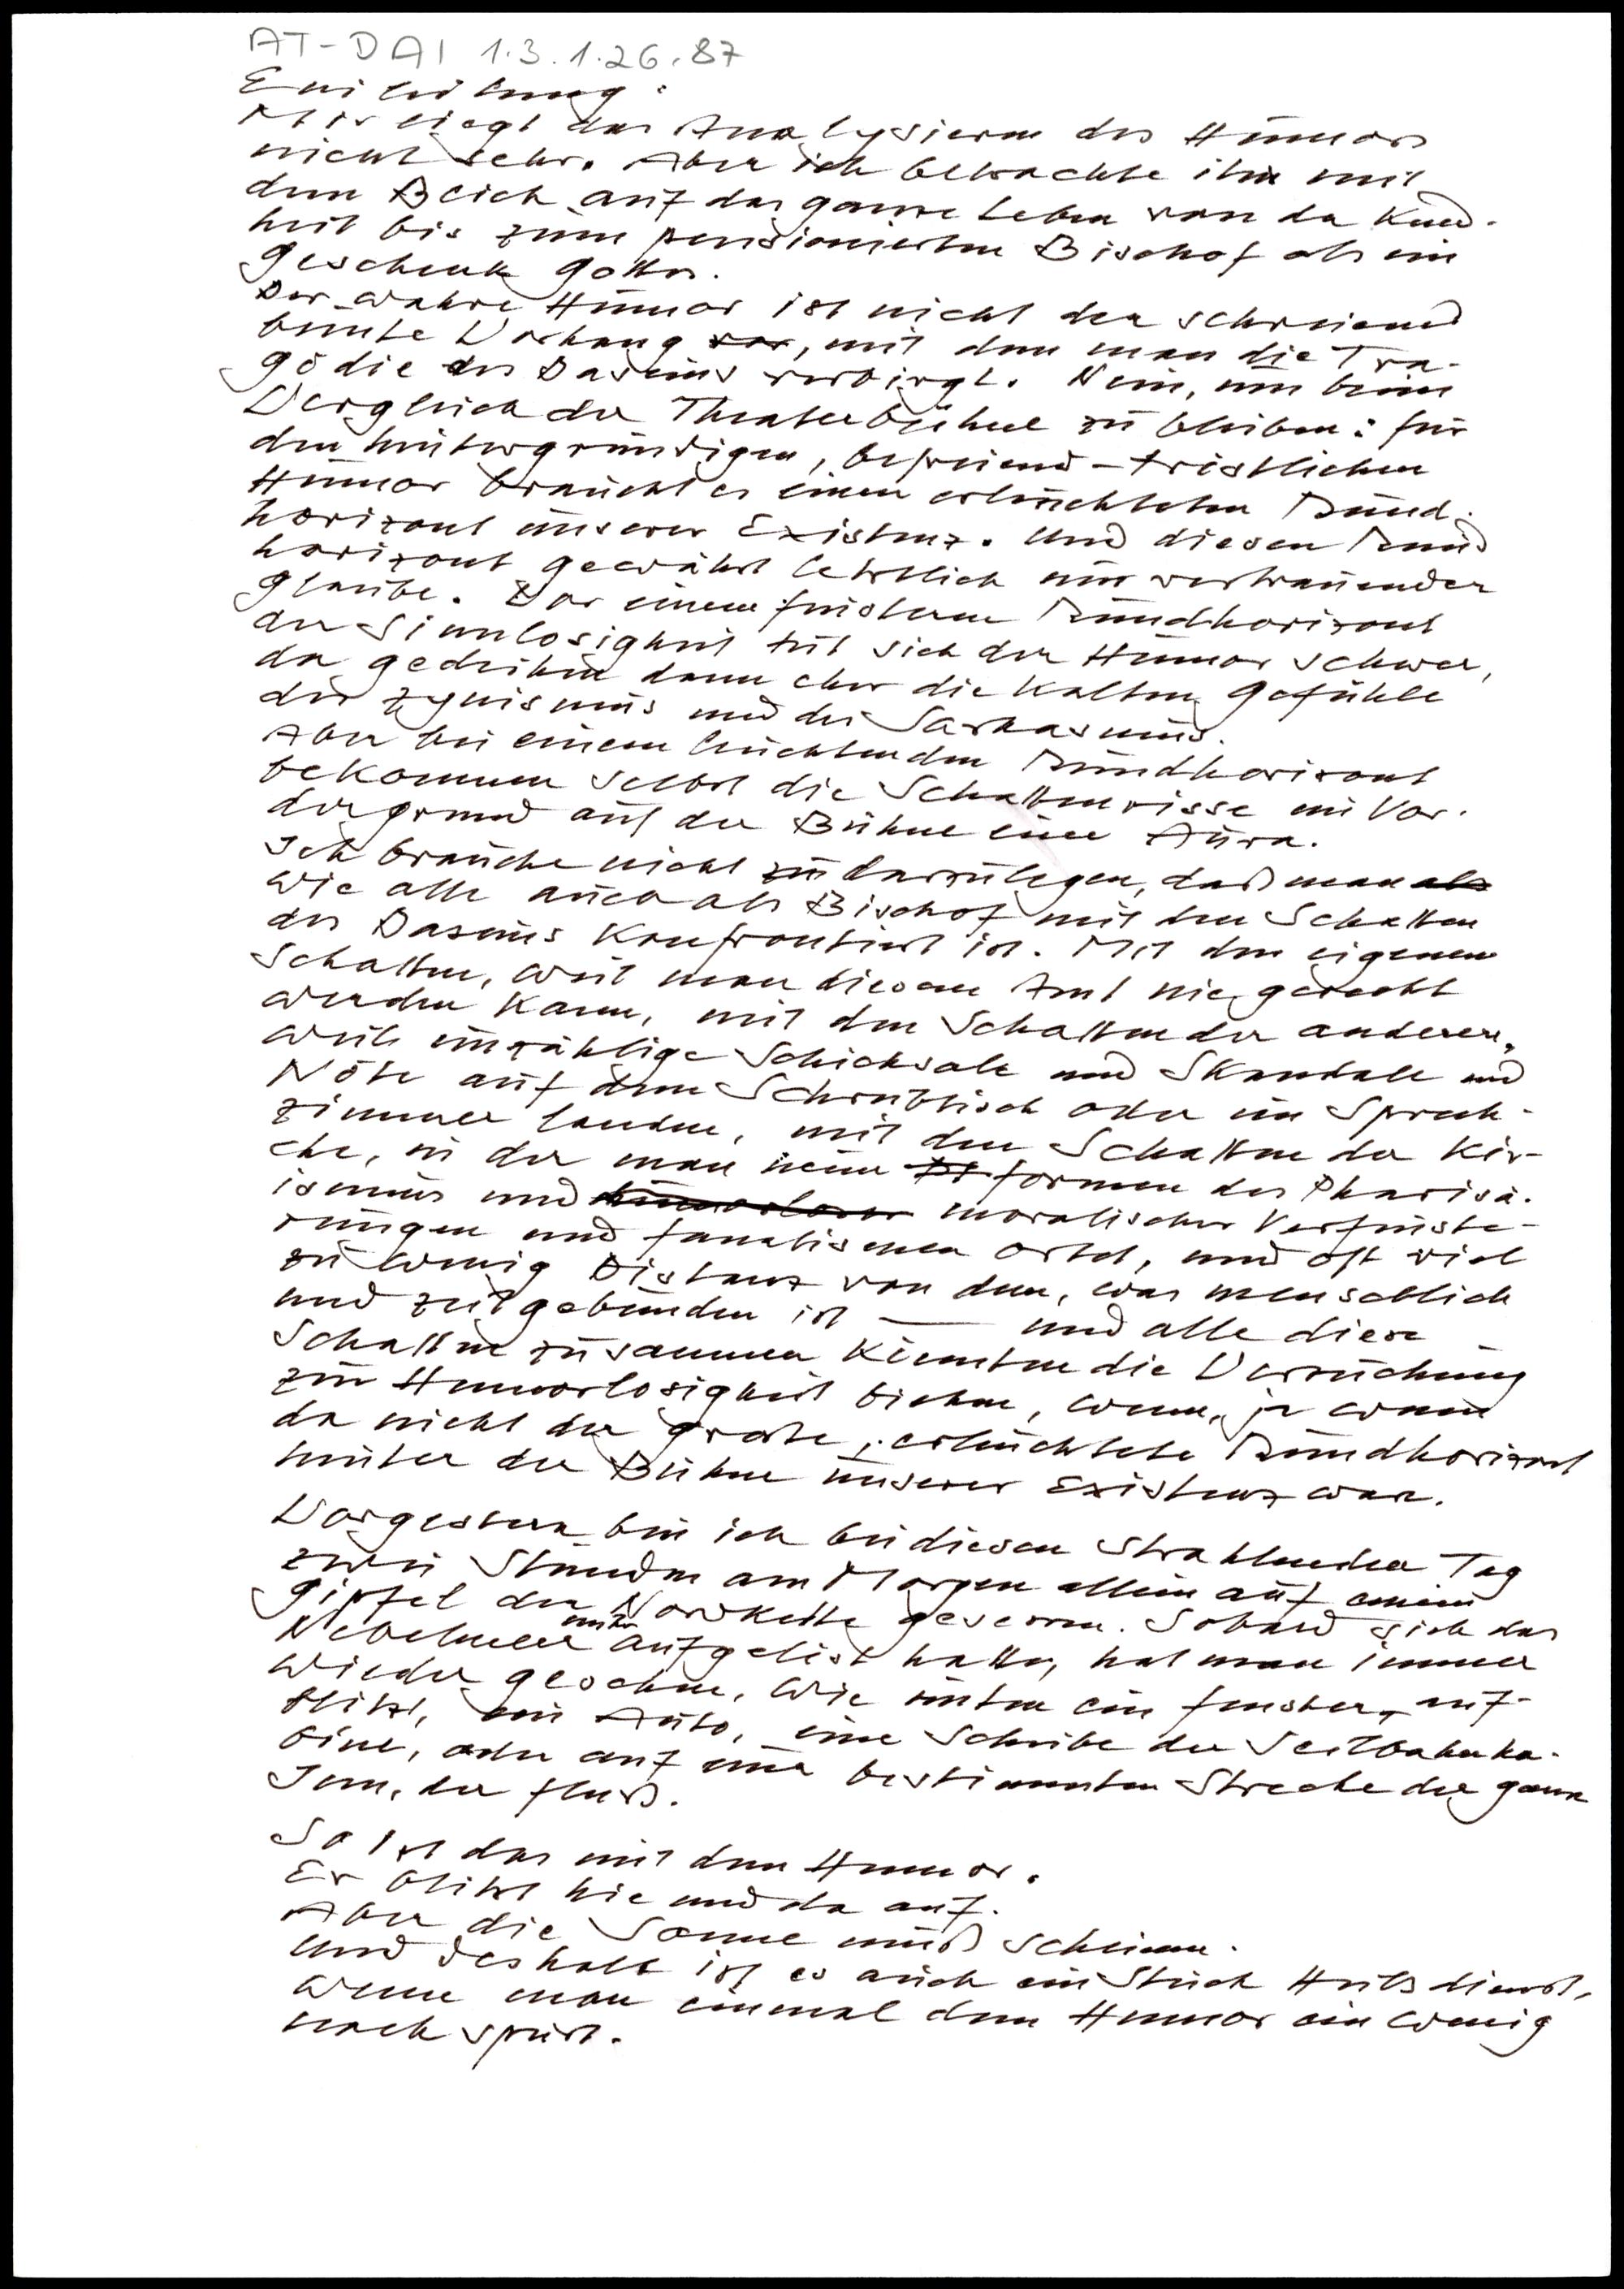 AT-DAI 1.3.1.26.87
Einleitung:
Mir liegt das Analysieren des Humors
nicht sehr. Aber ich betrachte ihn mit
dem Blick auf das ganze Leben von der Kind-
heit bis zum pensionierten Bischof als ein
Geschenk Gottes.
Der wahre Humor ist nicht der schreiend
bunte Vorhang vor, mit dem man die Tra-
gödie des Daseins verbirgt. Nein, um beim
Vergleich der Theaterbühne zu bleiben: für
den hintergründigen, befreiend-tröstlichen
Humor braucht es einen erleuchteten Rund-
horizont unserer Existenz. Und diesen Rund
horizont gewährt letztlich nur vertrauender
Glaube. Vor einem finsteren Rundhorizont
der Sinnlosigkeit tut sich der Humor schwer,
da gedeihen dann eher die kalten Gefühle
des Zynismus und des Sarkasmus.
Aber bei einem leuchtenden Rundhorizont
bekommen selbst die Schattenrisse im Vor-
dergrund auf der Bühne eine Aura.
Ich brauche nicht zu darzulegen, daß man als
wie alle auch als Bischof mit den Schatten
des Daseins konfrontiert ist. Mit den eigenen
Schatten, weil man diesem Amt nie gerecht
werden kann, mit den Schatten der anderen,
weil unzählige Schicksale und Skandale und
Nöte auf dem Schreibtisch oder im Sprech-
zimmer landen, mit den Schatten der Kir-
che, in der man neue Formen des Pharisä-
ismus und humorloser moralischer Verfinste-
rungen und Fanatismen ortet, und oft viel
zu wenig Distanz von dem, was menschlich
und zeitgebunden ist — und alle diese
Schatten zusammen könnten die Versuchung
zur Humorlosigkeit bieten, wenn, ja wenn
da nicht der große, erleuchtete Rundhorizont
hinter der Bühne unserer Existenz wäre.
Vorgestern bin ich bei diesem strahlenden Tag
zwei Stunden am Morgen allein auf einem
Gipfel der Nordkette gesessen. Sobald sich das
Nebelmeer unten aufgelöst hatte, hat man immer
wieder gesehen, wie unten ein Fenster auf-
blitzt, ein Auto, eine Scheibe der Seilbahnka-
bine, oder auf einer bestimmten Strecke der ganze
Inn, der Fluß.
So ist das mit dem Humor.
Er blitzt hie und da auf.
Aber die Sonne muß scheinen.
Und deshalb ist es auch ein Stück Heilsdienst,
wenn man einmal dem Humor ein wenig
nachspürt.